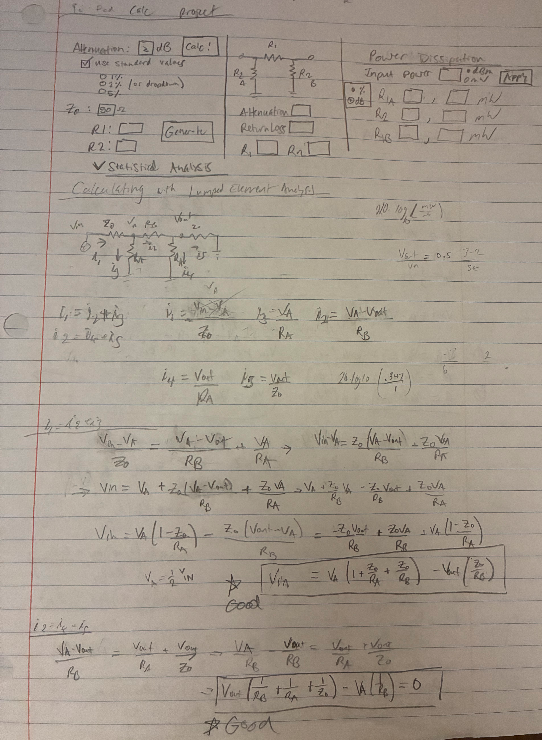 Pad Calc project
Attenuation: 3 dB Calc!
use standard values
1%
2% (or dropdown)
5%
Z0: 50 Ω
R1: Generate
R2:
✓ Statistical Analysis
R1
R2 A
R2 B
Attenuation
Return Loss
R1 R2
Power Dissipation
Input Power dBm mW Appy
% R1A , mW
dB R2 , mW
R1B , mW
Calculating with Lumped Element Analysis
Vin Z0 VA RB Vout Z0
i1 = i2 + i3 i1 = Vin - VA / Z0 i3 = VA / RA i2 = VA - Vout / RB
i2 = i4 + i5
i4 = Vout / RA i5 = Vout / Z0 20 log10 ( .347 / 1 )
Vout / Vin = 0.5
i1 = i2 + i3
Vin - VA / Z0 = VA - Vout / RB + VA / RA → Vin - VA = Z0 (VA - Vout) / RB + Z0 VA / RA
→ Vin = VA + Z0 (VA - Vout) / RB + Z0 VA / RA → VA + Z0 / RB VA - Z0 Vout / RB + Z0 VA / RA
Vin = VA ( 1 - Z0 / RA ) - Z0 (Vout - VA) / RB = -Z0 Vout / RB + Z0 VA / RB + VA ( 1 - Z0 / RA )
VA = 1/2 VIN ☆ Good Vin = VA ( 1 + Z0 / RA + Z0 / RB ) - Vout ( Z0 / RB )
VA - Vout / RB = Vout / RA + Vout / Z0 → VA / RB - Vout / RB = Vout / RA + Vout / Z0
→ Vout ( 1 / RB + 1 / RA + 1 / Z0 ) - VA ( 1 / RB ) = 0
☆ Good